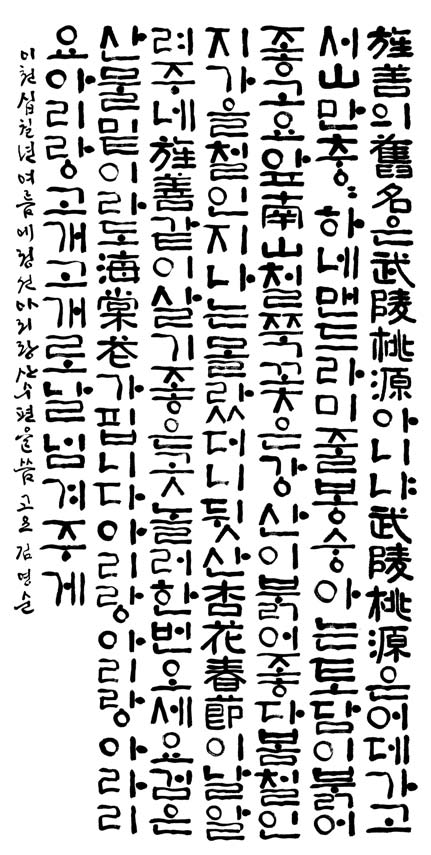 旌善의舊名은武陵桃源아니냐武陵桃源은어데가고
서山만충〻하네맨드라미줄봉숭아는토담이붉어
좋고요앞南山철쭉꽃은강산이붉어좋다봄철인
지가을철인지나는몰랐더니뒷산杏花春節이날알
려주네旌善같이살기좋은곳놀러한번오세요검은
산물밑이라도海棠花가핍니다아리랑아리랑아라리
요아리랑고개고개로날넘겨주게
이천십칠년여름에정선아리랑산수편을씀 고요 김명순